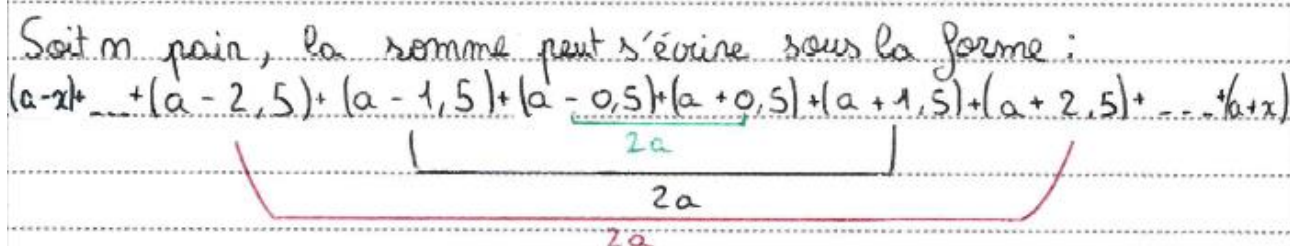 Soit n pair, la somme peut s'écrire sous la forme :
(a-x)+ ... +(a - 2,5)+ (a - 1,5)+(a - 0,5)+(a + 0,5)+(a + 1,5)+(a + 2,5)+ - - - +(a+x)
2a
2a
2a